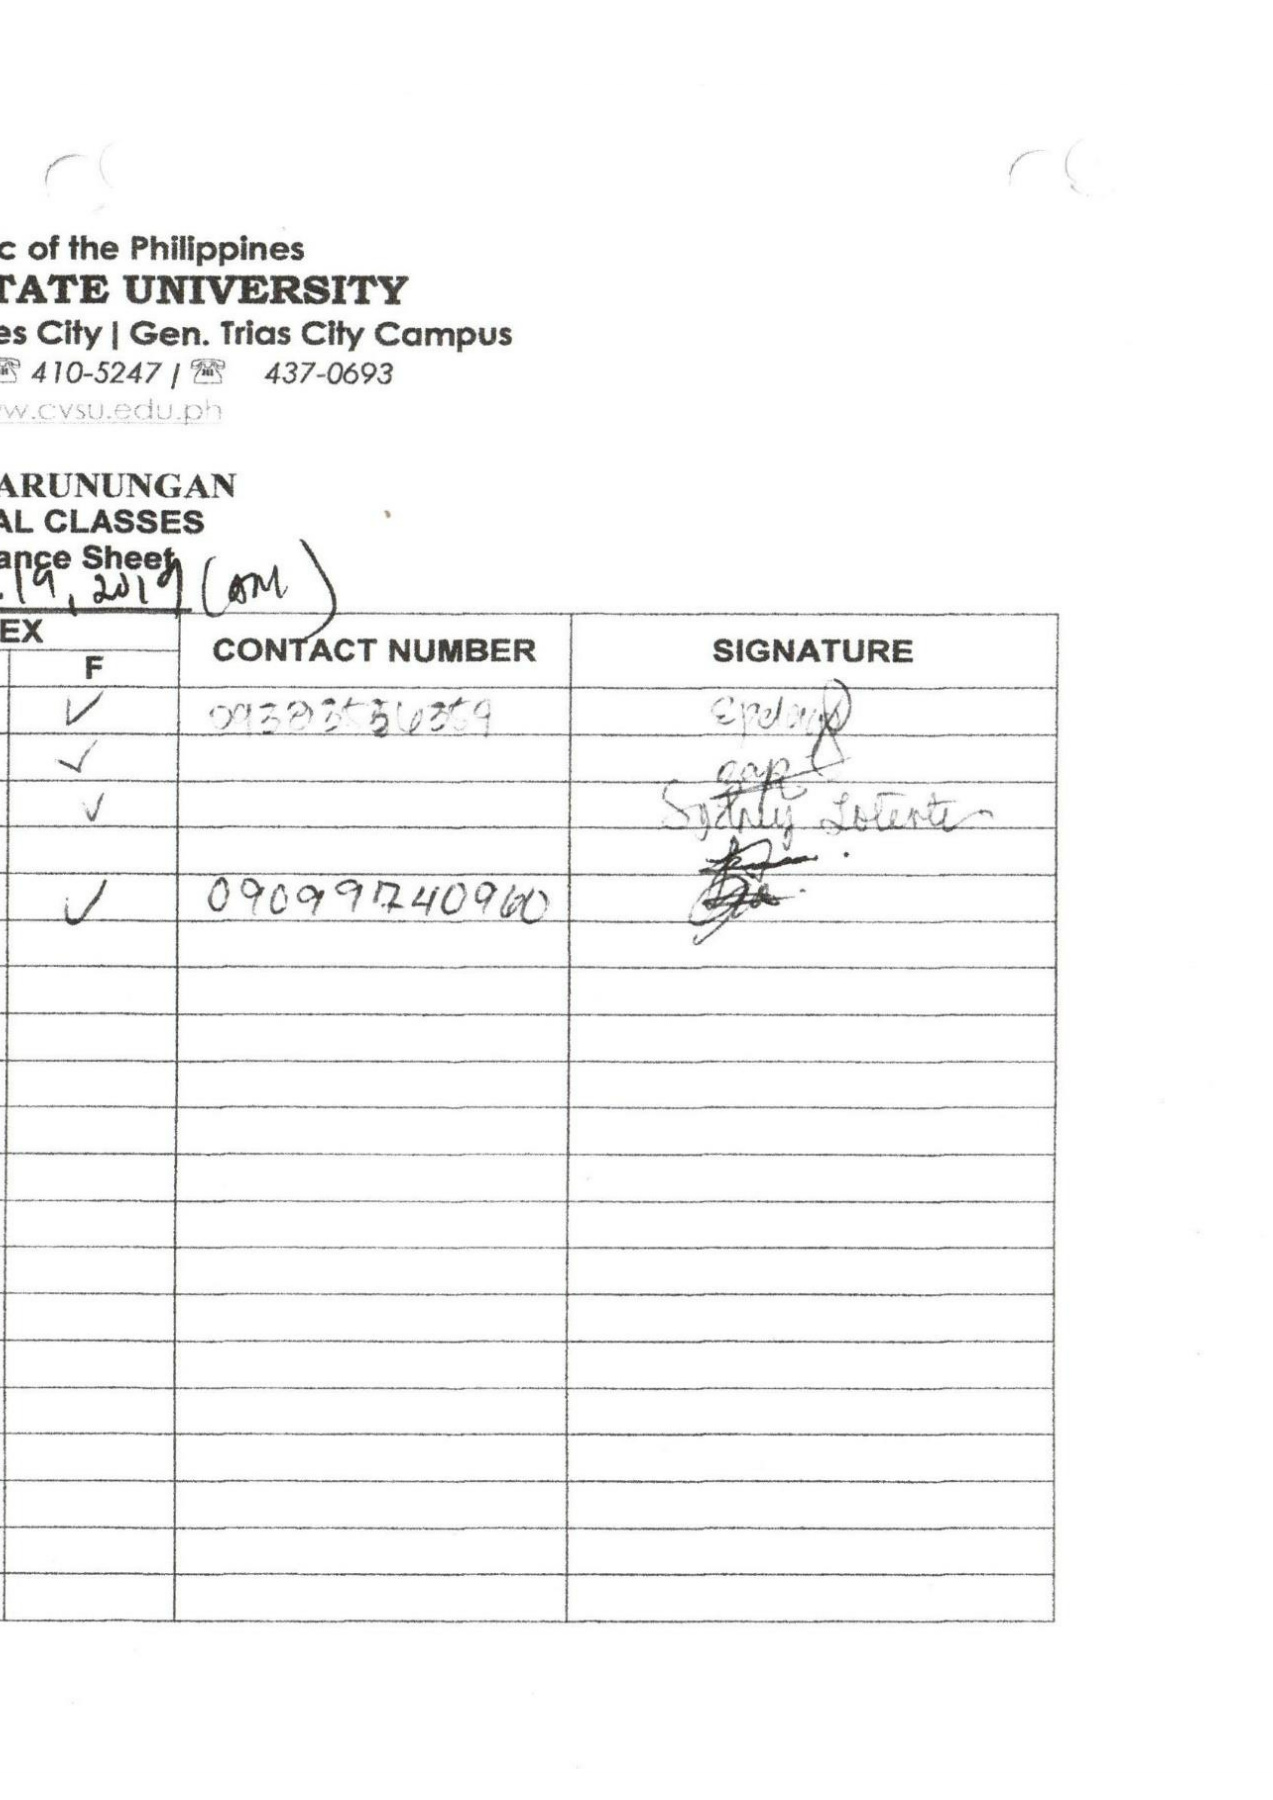 c of the Philippines
TATE UNIVERSITY
es City | Gen. Trias City Campus
☏ 410-5247 / ☏ 437-0693
w.cvsu.edu.ph
ARUNUNGAN
AL CLASSES
ance Sheet
. 19, 2019 (AM)
EX
F
CONTACT NUMBER
SIGNATURE
✓
✓
✓ Sydney
✓ 09099740960